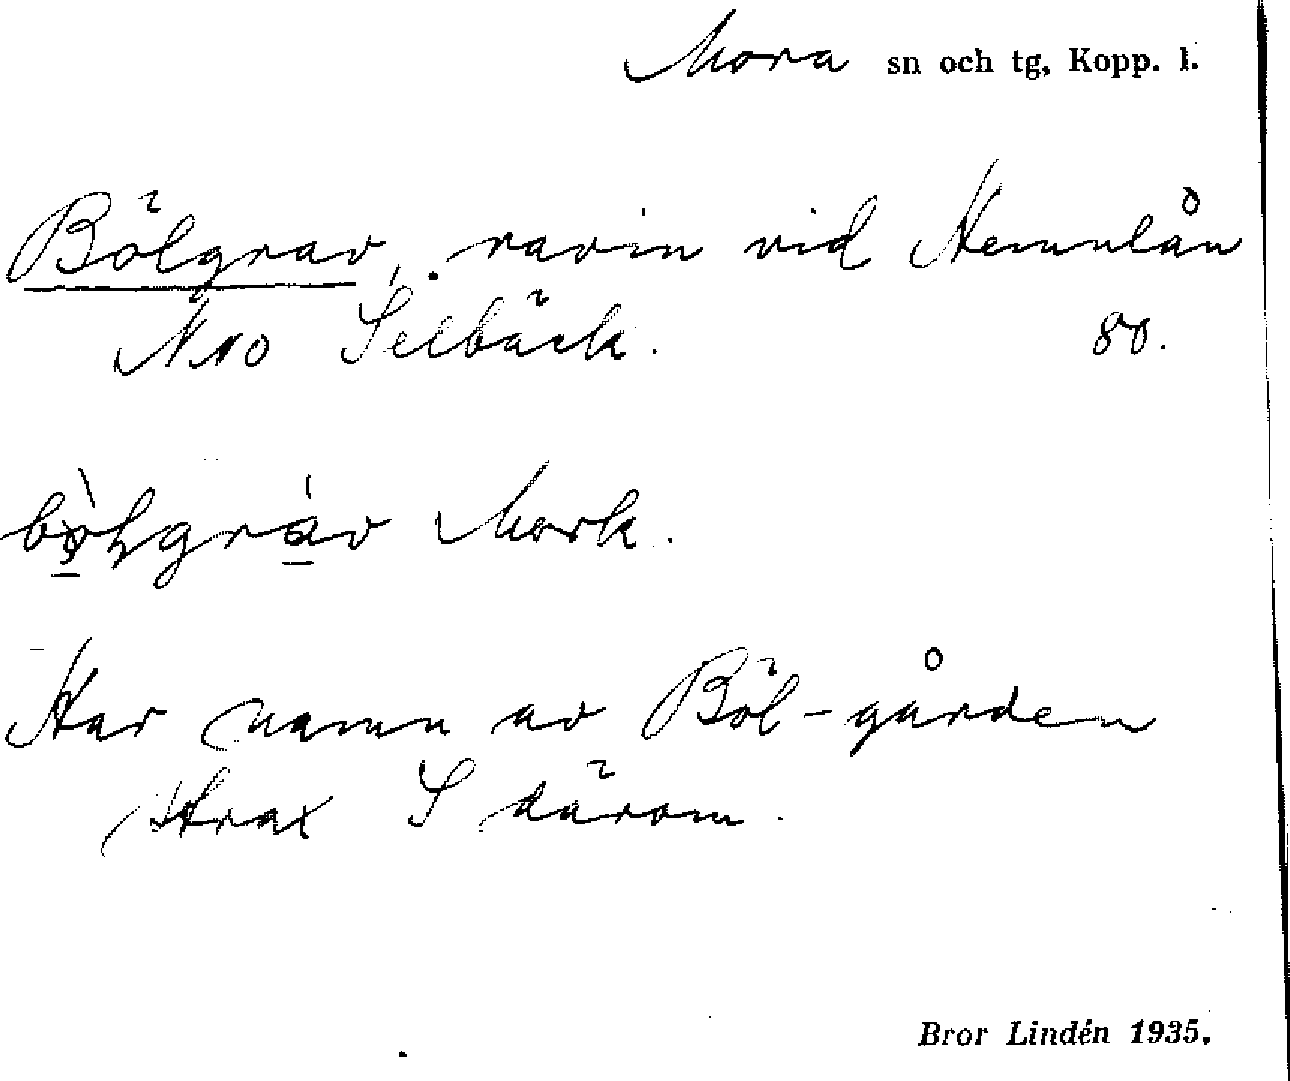 Mora sn och tg, Kopp. l.
Bölgrav, ravin vid Hemulån
NNO Selbäck. 80.
Mork.
Har namn av Böl-gården
strax S därom.
Bror Lindén 1935.